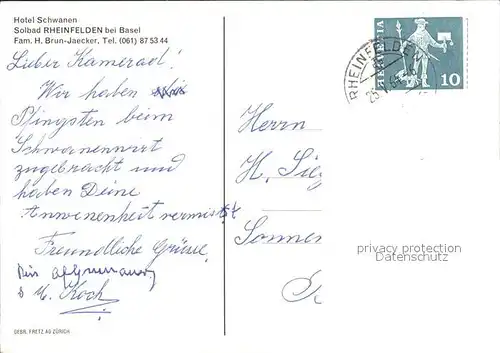 Hotel Schwanen
Solbad RHEINFELDEN bei Basel
Fam. H. Brun-Jaecker, Tel. (061) 87 53 44
Lieber Kamerad!
Wir haben
Pfingsten beim
Schwanenwirt
zugebracht und
haben Deine
Anwesenheit vermisst
Freundliche Grüsse
& M. Koch
GEBR. FRETZ AG ZÜRICH
HELVETIA
10
RHEINFELDEN
Herrn
H.
Sonnen
privacy protection
Datenschutz